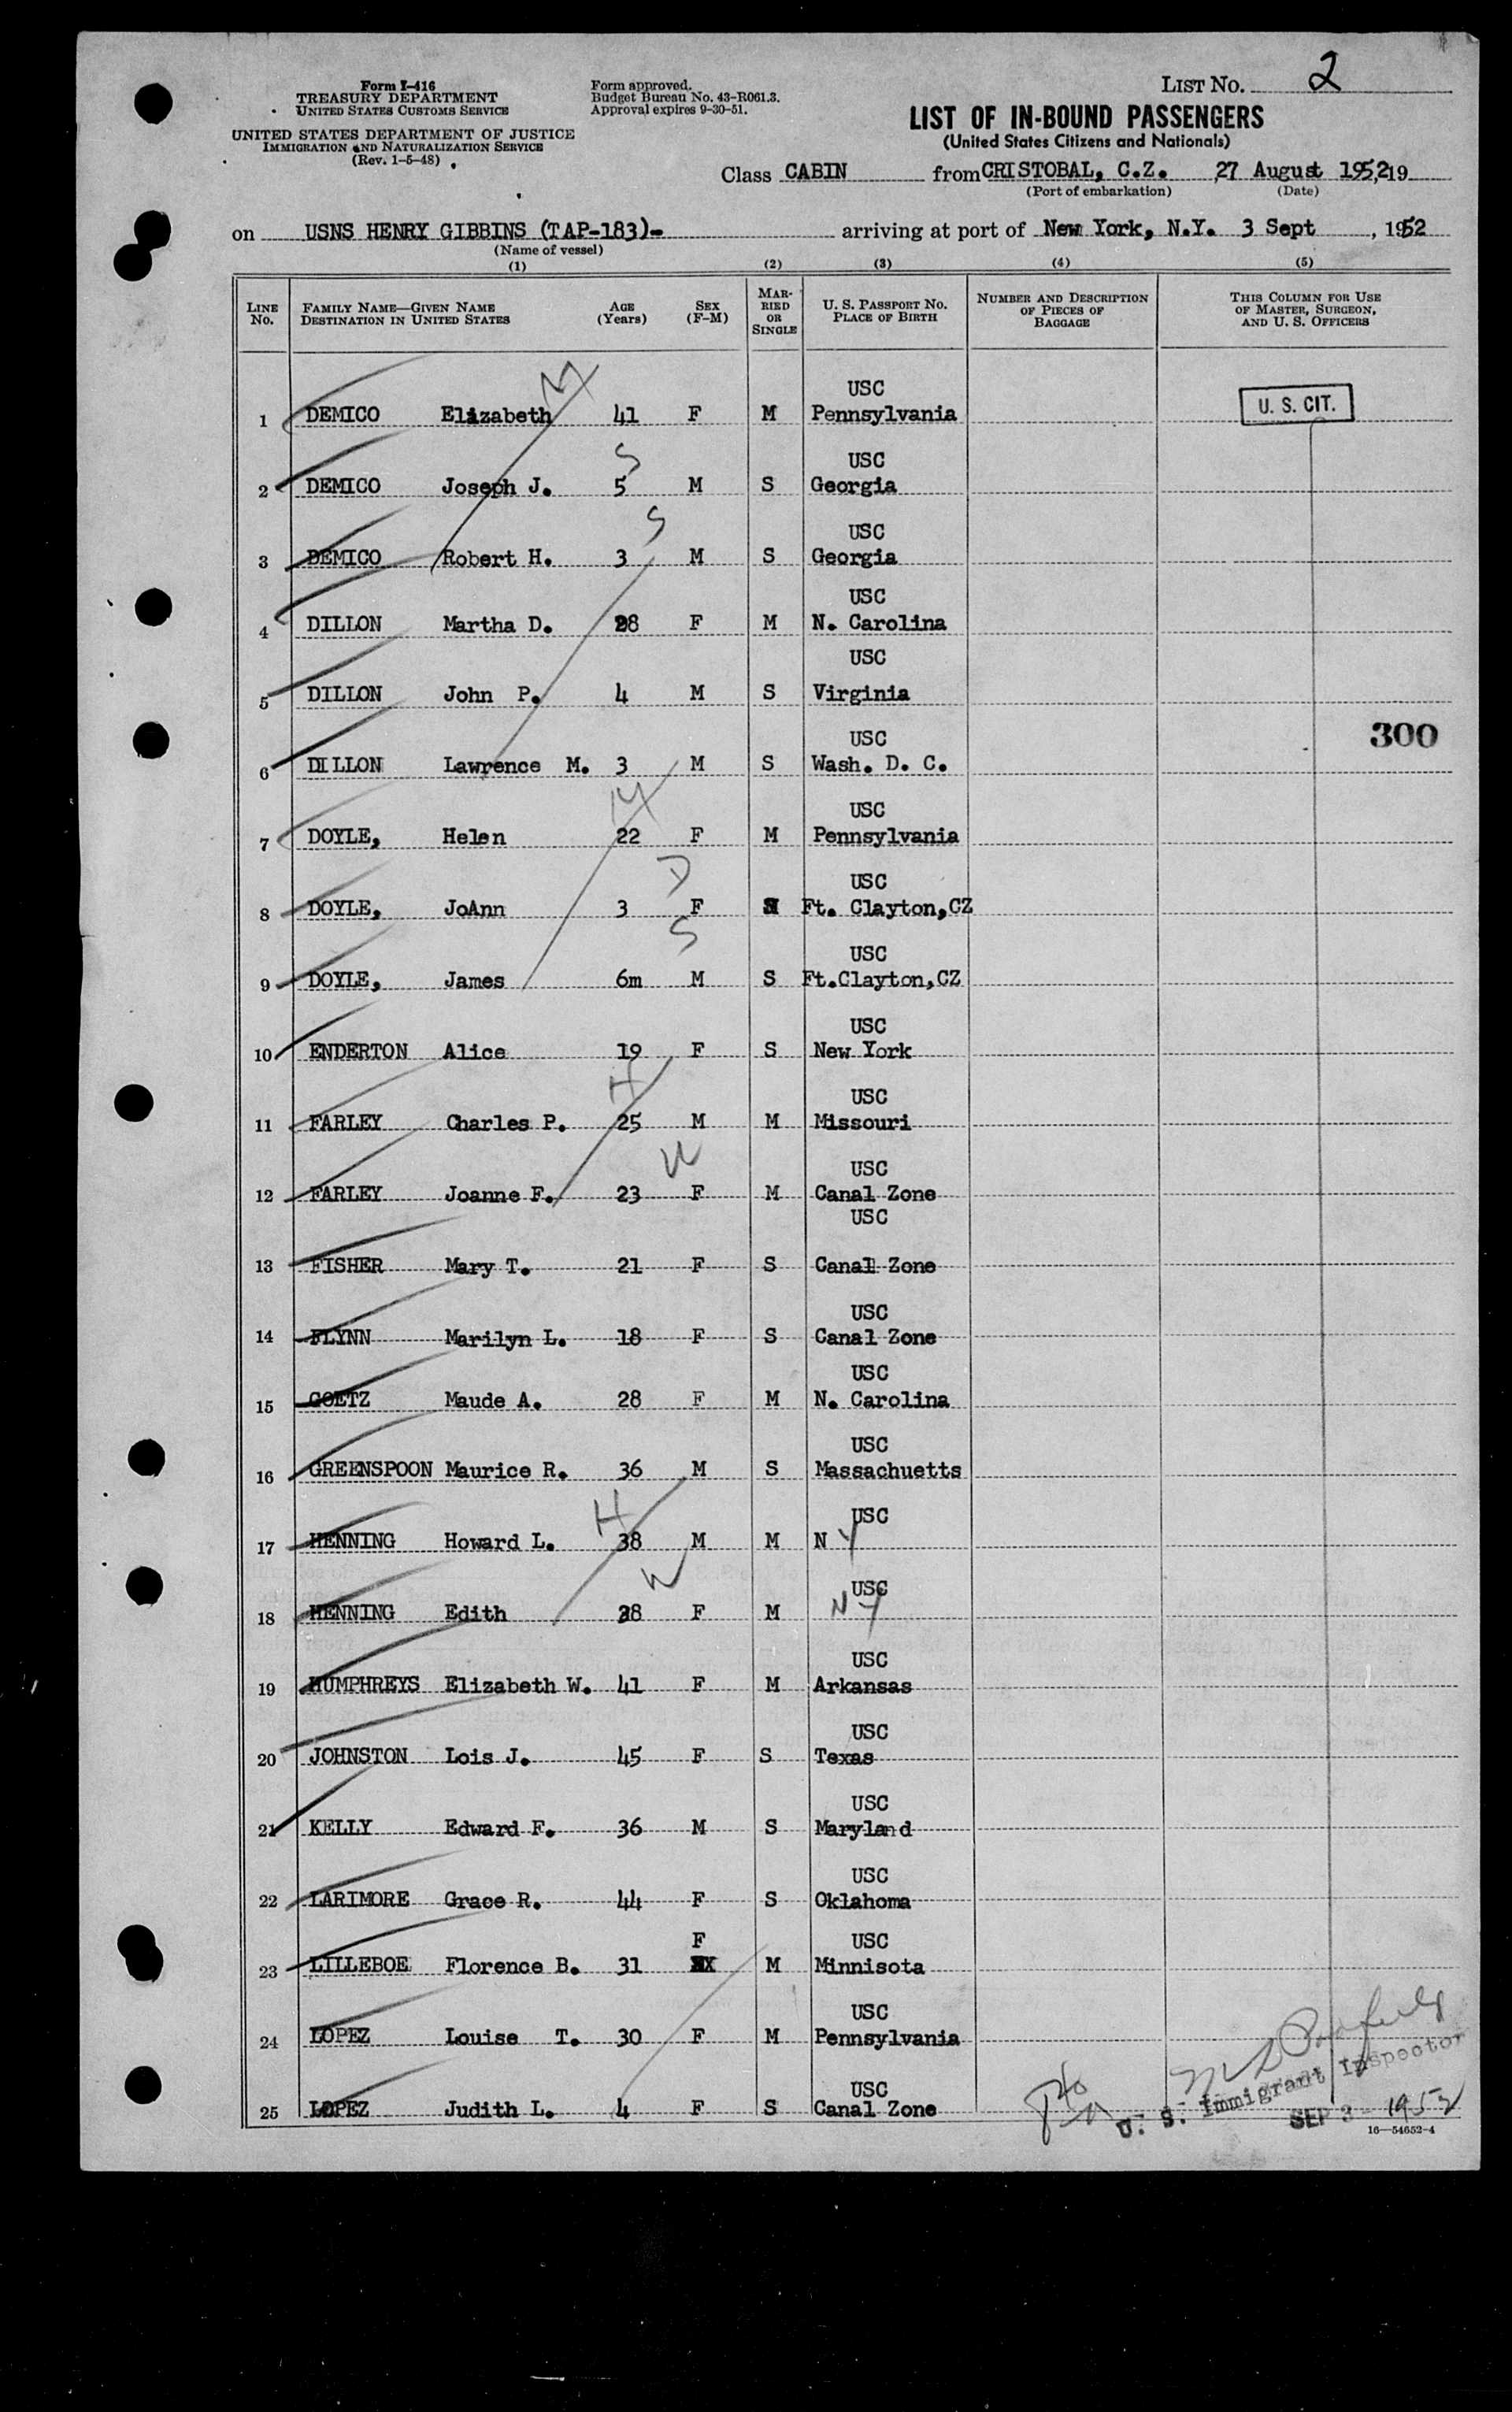 Form I-416
TREASURY DEPARTMENT
UNITED STATES CUSTOMS SERVICE
UNITED STATES DEPARTMENT OF JUSTICE
IMMIGRATION AND NATURALIZATION SERVICE
(Rev. 1-5-48)
Form approved.
Budget Bureau No. 43-R061.3.
Approval expires 9-30-51.
LIST NO. 2
LIST OF IN-BOUND PASSENGERS
(United States Citizens and Nationals)
Class CABIN from CRISTOBAL, C.Z. , 27 August 1952, 19
(Port of embarkation) (Date)
on USNS HENRY GIBBINS (TAP-183)- arriving at port of New York, N.Y. 3 Sept , 1952
(Name of vessel)
(1) (2) (3) (4) (5)
LINE NO. FAMILY NAME—GIVEN NAME DESTINATION IN UNITED STATES AGE (Years) SEX (F-M) MARRIED OR SINGLE U. S. PASSPORT NO. PLACE OF BIRTH NUMBER AND DESCRIPTION OF PIECES OF BAGGAGE THIS COLUMN FOR USE OF MASTER, SURGEON, AND U. S. OFFICERS
M
USC
1 DEMICO Elizabeth 41 F M Pennsylvania U. S. CIT.
S USC
2 DEMICO Joseph J. 5 M S Georgia
S USC
3 DEMICO Robert H. 3 M S Georgia
USC
4 DILLON Martha D. 28 F M N. Carolina
USC
5 DILLON John P. 4 M S Virginia
300
USC
6 DILLON Lawrence M. 3 M S Wash. D. C.
M USC
7 DOYLE, Helen 22 F M Pennsylvania
D USC
8 DOYLE, JoAnn 3 F S Ft. Clayton,CZ
S USC
9 DOYLE, James 6m M S Ft.Clayton,CZ
USC
10 ENDERTON Alice 19 F S New York
H USC
11 FARLEY Charles P. 25 M M Missouri
W USC
12 FARLEY Joanne F. 23 F M Canal Zone
USC
13 FISHER Mary T. 21 F S Canal Zone
USC
14 FLYNN Marilyn L. 18 F S Canal Zone
USC
15 GOETZ Maude A. 28 F M N. Carolina
USC
16 GREENSPOON Maurice R. 36 M S Massachuetts
H USC
17 HENNING Howard L. 38 M M N Y
W USC
18 HENNING Edith 28 F M N Y
USC
19 HUMPHREYS Elizabeth W. 41 F M Arkansas
USC
20 JOHNSTON Lois J. 45 F S Texas
USC
21 KELLY Edward F. 36 M S Maryland
USC
22 LARIMORE Grace R. 44 F S Oklahoma
F USC
23 LILLEBOE Florence B. 31 M Minnisota
USC
24 LOPEZ Louise T. 30 F M Pennsylvania
USC
25 LOPEZ Judith L. 4 F S Canal Zone
U. S. Immigrant Inspector
SEP 3 - 1952
16—54652-4